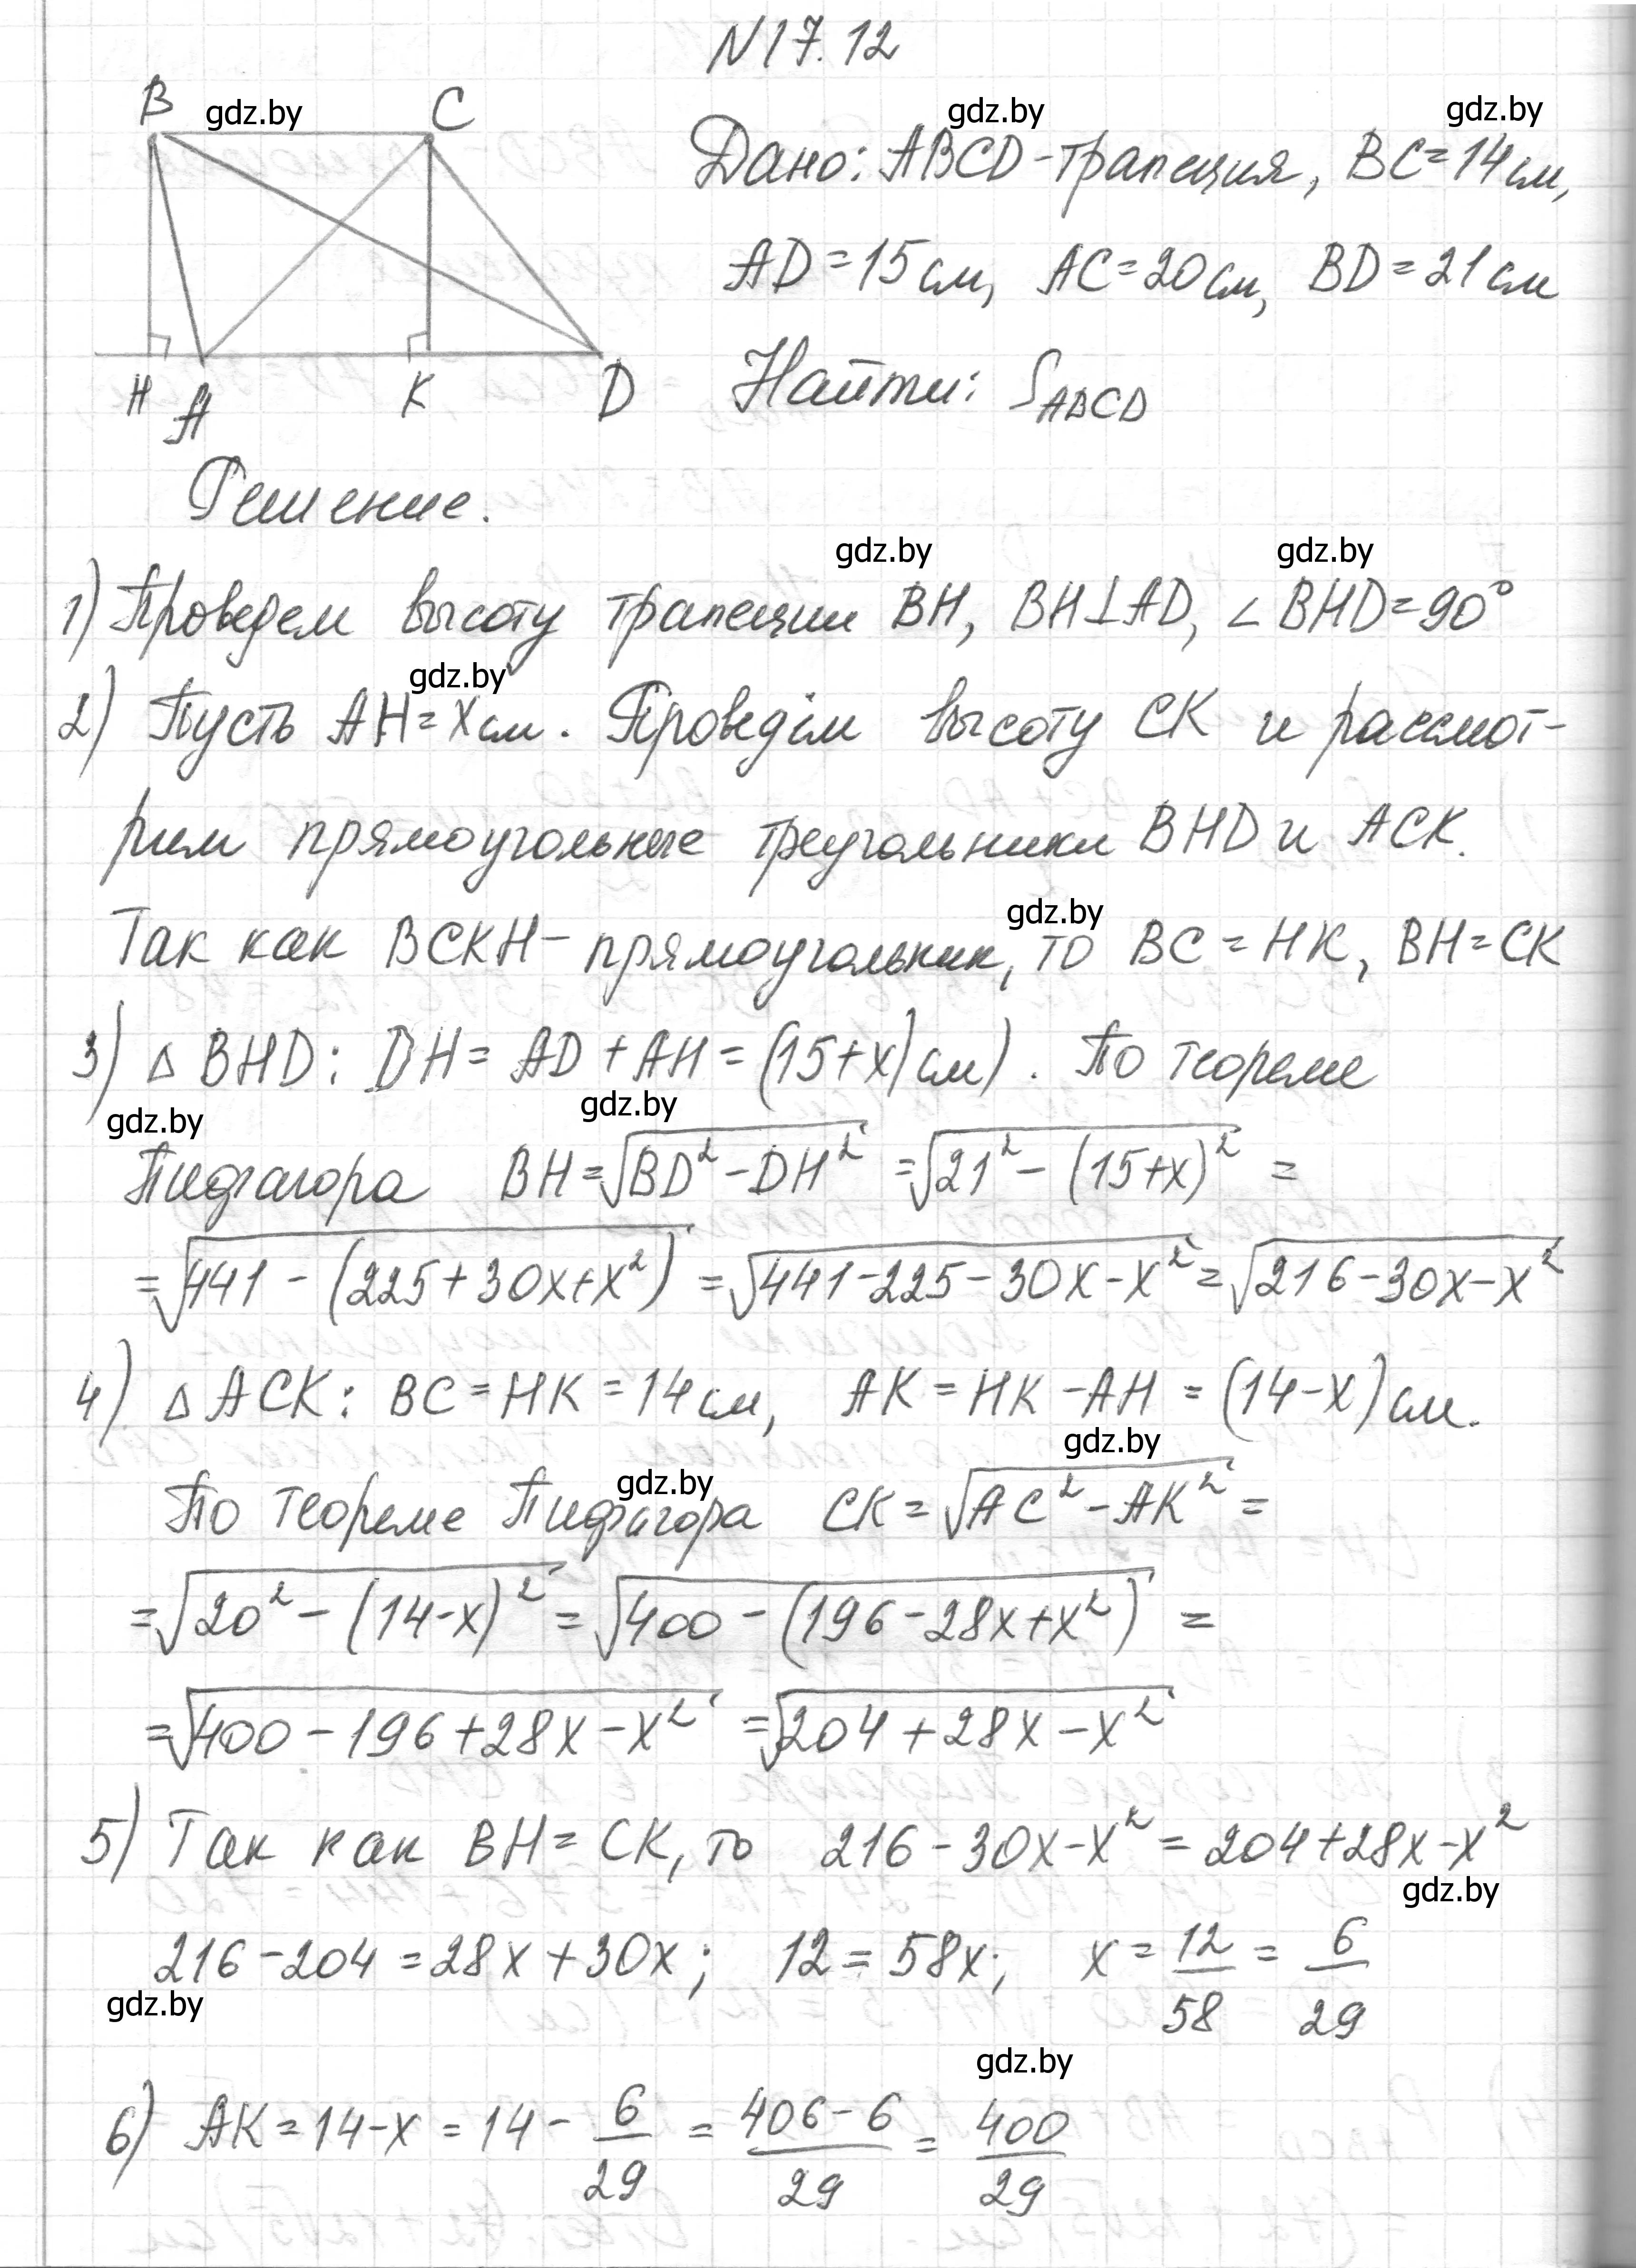 N17.12
B gdz.by C gdz.by gdz.by
Дано: ABCD-трапеция, BC=14см,
AD=15см, AC=20см, BD=21см
H A K D Найти: S_ABCD
Решение.
gdz.by gdz.by
1) Проведем высоту трапеции BH, BH⊥AD, ∠BHD=90°
gdz.by
2) Пусть AH=xсм. Проведём высоту CK и рассмот-
рим прямоугольные треугольники BHD и ACK.
gdz.by
Так как BCKH-прямоугольник, то BC=HK, BH=CK
3) △BHD: DH=AD+AH=(15+x)см). По теореме
gdz.by gdz.by
Пифагора BH=√(BD²-DH²)=√(21²-(15+x)²)=
=√(441-(225+30x+x²))=√(441-225-30x-x²)=√(216-30x-x²)
4) △ACK: BC=HK=14см, AK=HK-AH=(14-x)см.
gdz.by gdz.by
По теореме Пифагора CK=√(AC²-AK²)=
=√(20²-(14-x)²)=√(400-(196-28x+x²))=
=√(400-196+28x-x²)=√(204+28x-x²)
5) Так как BH=CK, то 216-30x-x²=204+28x-x²
gdz.by
216-204=28x+30x; 12=58x; x=12/58=6/29
gdz.by gdz.by
6) AK=14-x=14-6/29=(406-6)/29=400/29